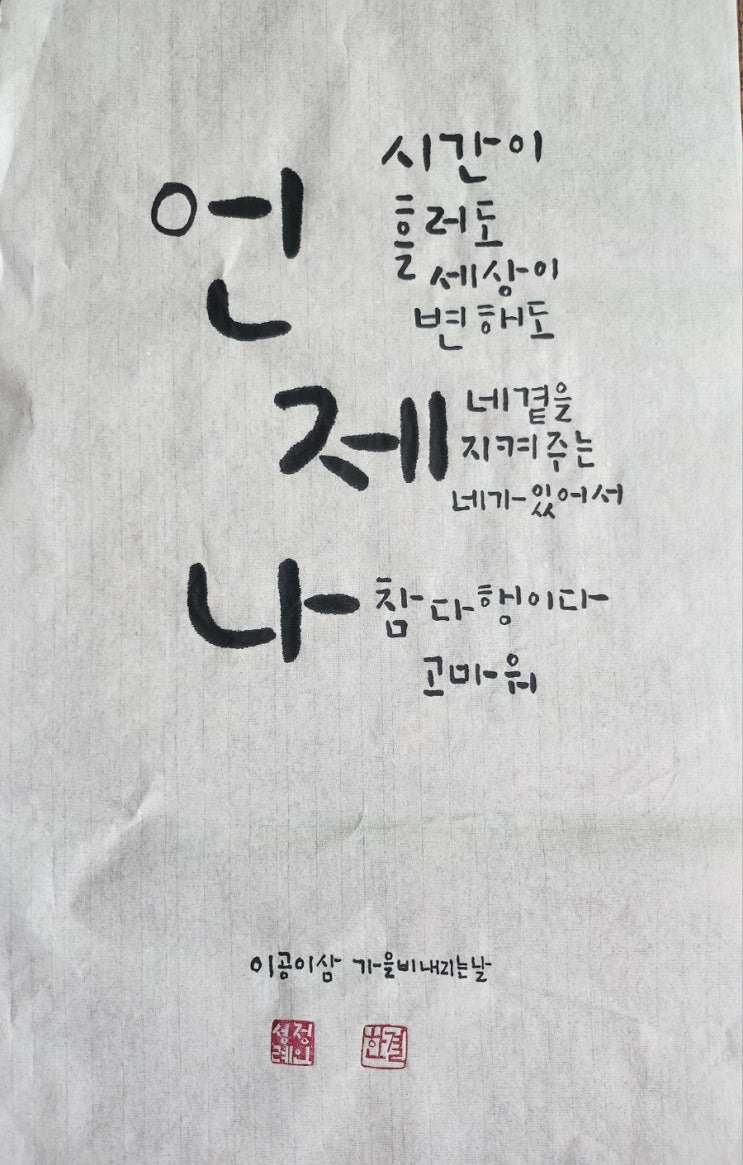 언
제
나
시간이
흘러도
세상이
변해도
네곁을
지켜주는
네가있어서
참다행이다
고마워
이공이삼 가을비내리는날
한결